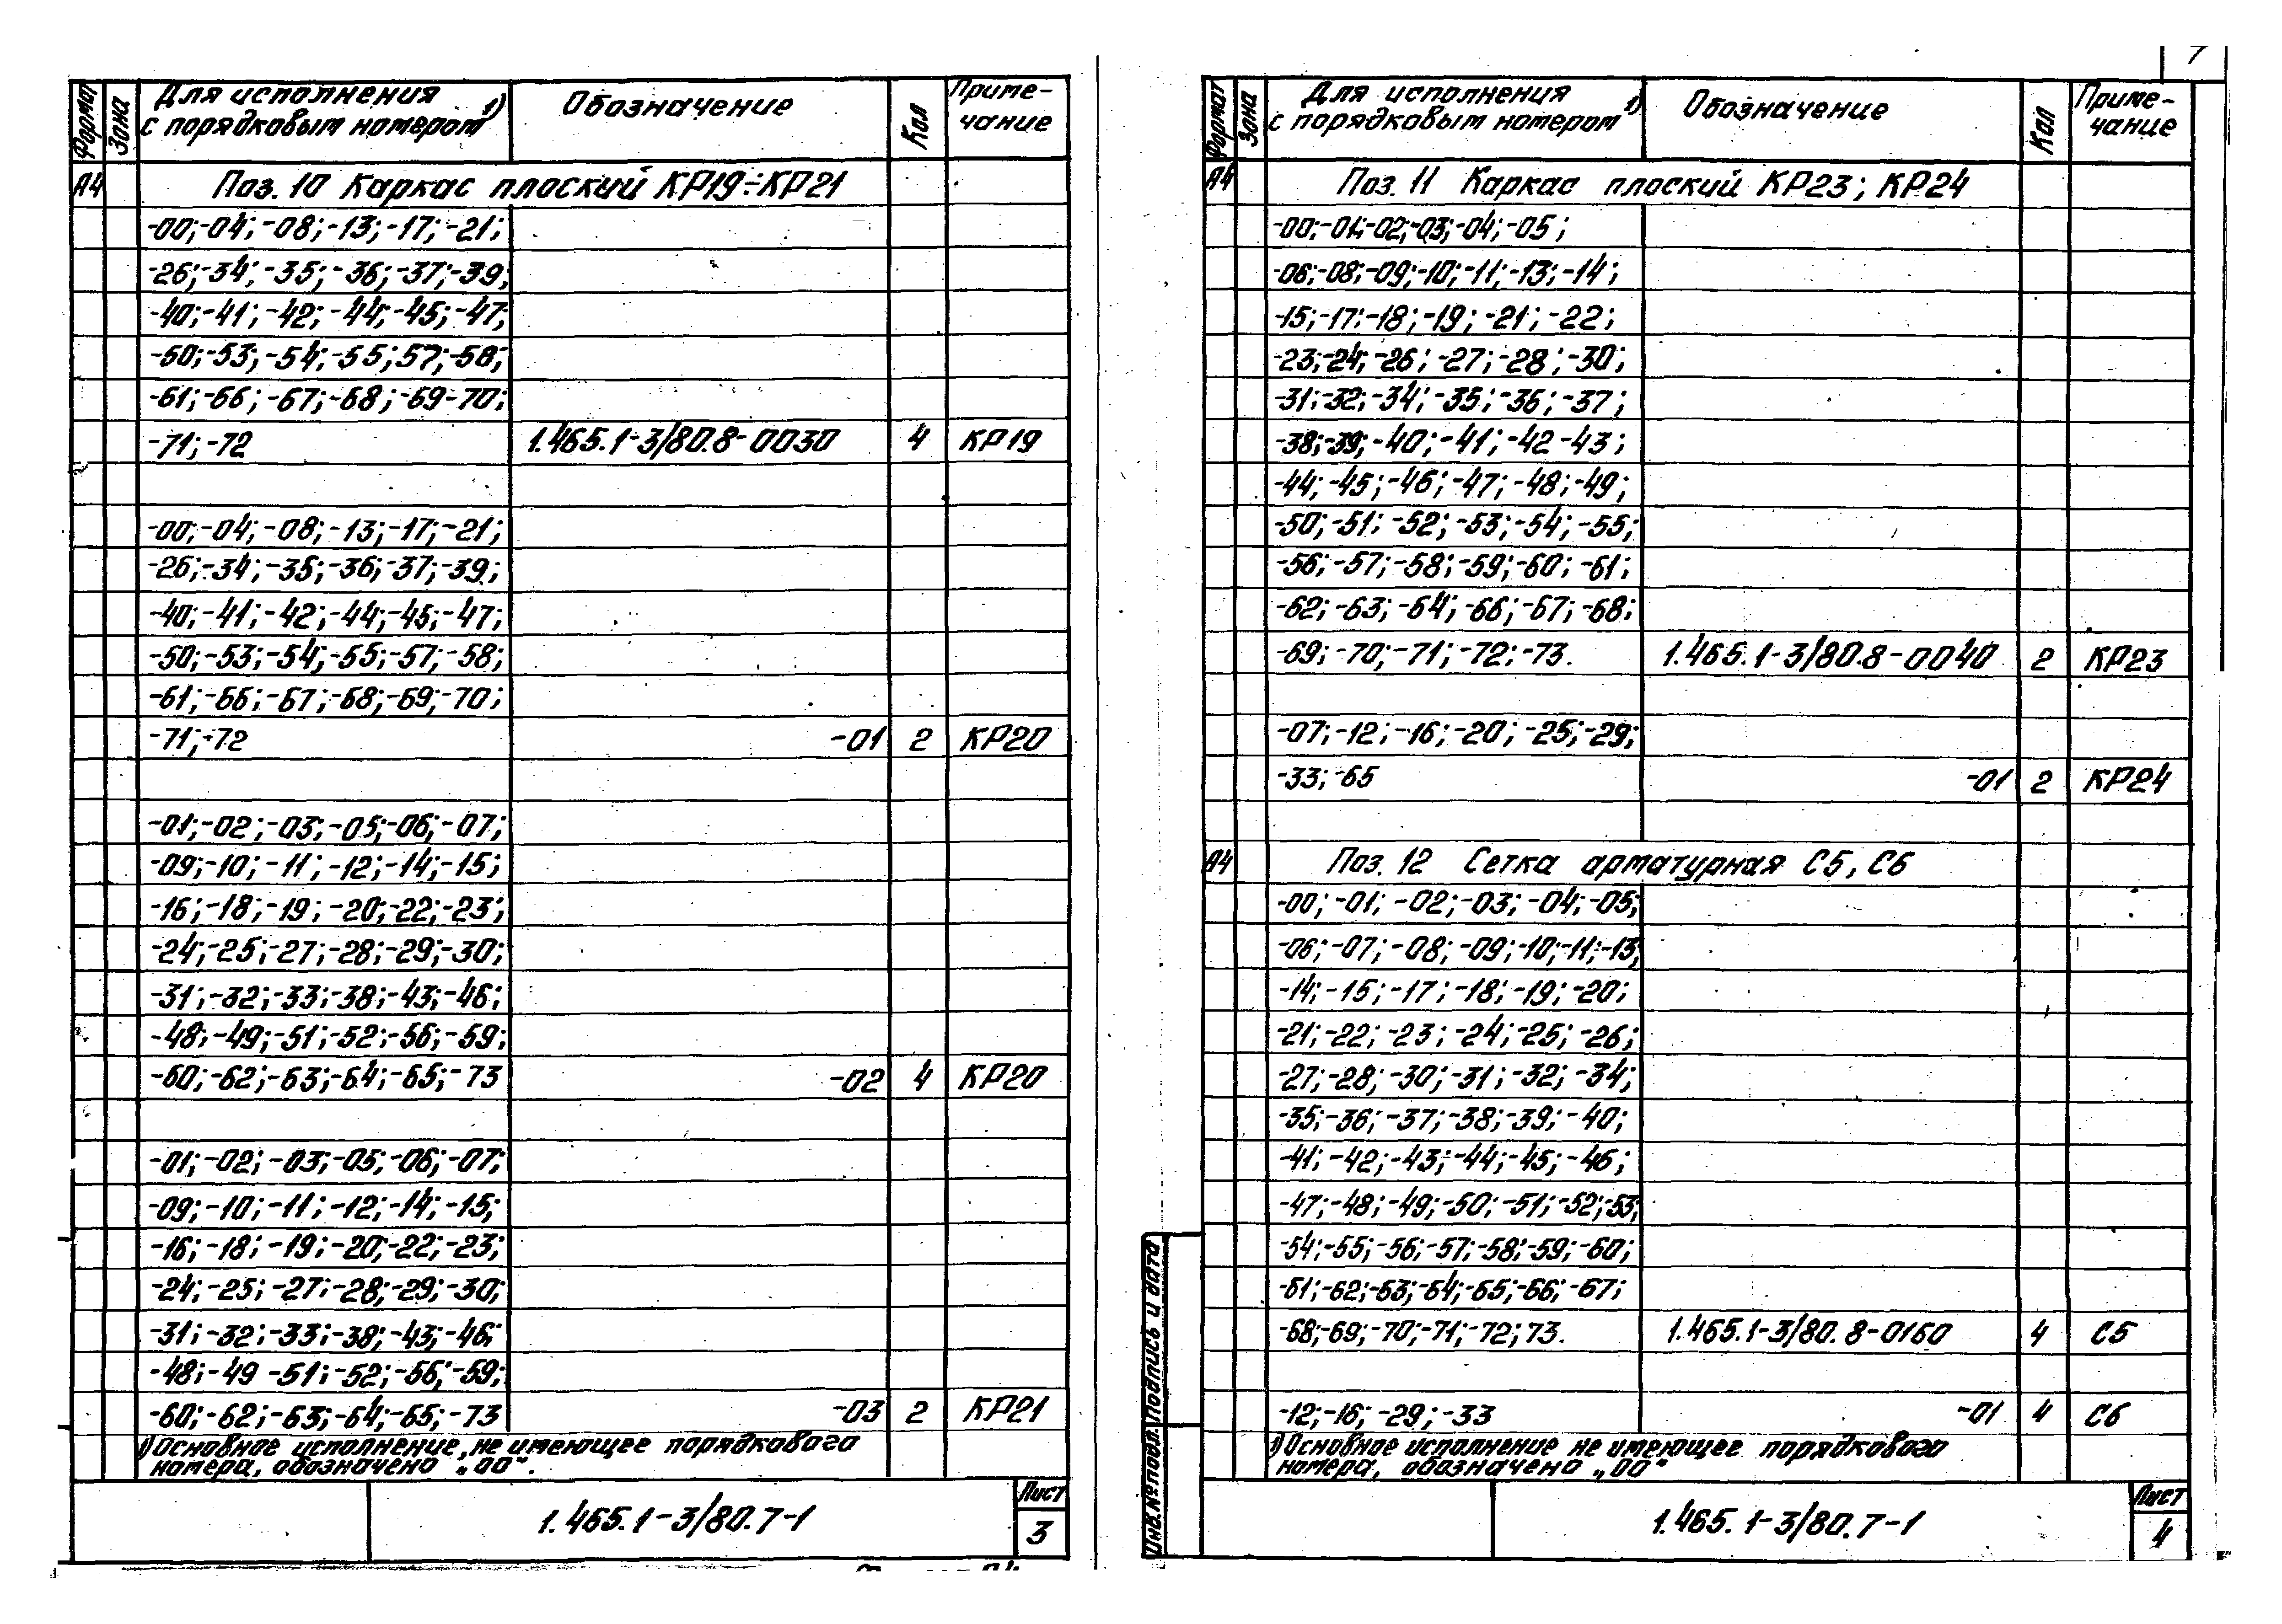 Формат
Зона
Для исполнения
с порядковым номером 1)
Обозначение
Кол
Приме-
чание
А4 Поз. 10 Каркас плоский КР19÷КР21
-00;-04;-08;-13;-17;-21;
-26;-34;-35;-36;-37;-39;
-40;-41;-42;-44;-45;-47;
-50;-53;-54;-55;57;-58;
-61;-66;-67;-68;-69-70;
-71;-72 1.465.1-3/80.8-0030 4 КР19
-00;-04;-08;-13;-17;-21;
-26;-34;-35;-36;-37;-39;
-40;-41;-42;-44;-45;-47;
-50;-53;-54;-55;-57;-58;
-61;-66;-67;-68;-69;-70;
-71;-72 -01 2 КР20
-01;-02;-03;-05;-06;-07;
-09;-10;-11;-12;-14;-15;
-16;-18;-19;-20;-22;-23;
-24;-25;-27;-28;-29;-30;
-31;-32;-33;-38;-43;-46;
-48;-49;-51;-52;-56;-59;
-60;-62;-63;-64;-65;-73 -02 4 КР20
-01;-02;-03;-05;-06;-07;
-09;-10;-11;-12;-14;-15;
-16;-18;-19;-20;-22;-23;
-24;-25;-27;-28;-29;-30;
-31;-32;-33;-38;-43;-46;
-48;-49 -51;-52;-56;-59;
-60;-62;-63;-64;-65;-73 -03 2 КР21
1) Основное исполнение, не имеющее порядкового
номера, обозначено „00".
1.465.1-3/80.7-1
Лист
3
7
Формат
Зона
Для исполнения
с порядковым номером 1)
Обозначение
Кол
Приме-
чание
А4 Поз. 11 Каркас плоский КР23; КР24
-00;-01;-02;-03;-04;-05;
-06;-08;-09;-10;-11;-13;-14;
-15;-17;-18;-19;-21;-22;
-23;-24;-26;-27;-28;-30;
-31;-32;-34;-35;-36;-37;
-38;-39;-40;-41;-42-43;
-44;-45;-46;-47;-48;-49;
-50;-51;-52;-53;-54;-55;
-56;-57;-58;-59;-60;-61;
-62;-63;-64;-66;-67;-68;
-69;-70;-71;-72;-73. 1.465.1-3/80.8-0040 2 КР23
-07;-12;-16;-20;-25;-29;
-33;-65 -01 2 КР24
А4 Поз. 12 Сетка арматурная С5, С6
-00;-01;-02;-03;-04;-05;
-06;-07;-08;-09;-10;-11;-13;
-14;-15;-17;-18;-19;-20;
-21;-22;-23;-24;-25;-26;
-27;-28;-30;-31;-32;-34;
-35;-36;-37;-38;-39;-40;
-41;-42;-43;-44;-45;-46;
-47;-48;-49;-50;-51;-52;-53;
-54;-55;-56;-57;-58;-59;-60;
-61;-62;-63;-64;-65;-66;-67;
-68;-69;-70;-71;-72;73. 1.465.1-3/80.8-0160 4 С5
-12;-16;-29;-33 -01 4 С6
1) Основное исполнение не имеющее порядкового
номера, обозначено „00"
Инв.№подл. Подпись и дата
1.465.1-3/80.7-1
Лист
4